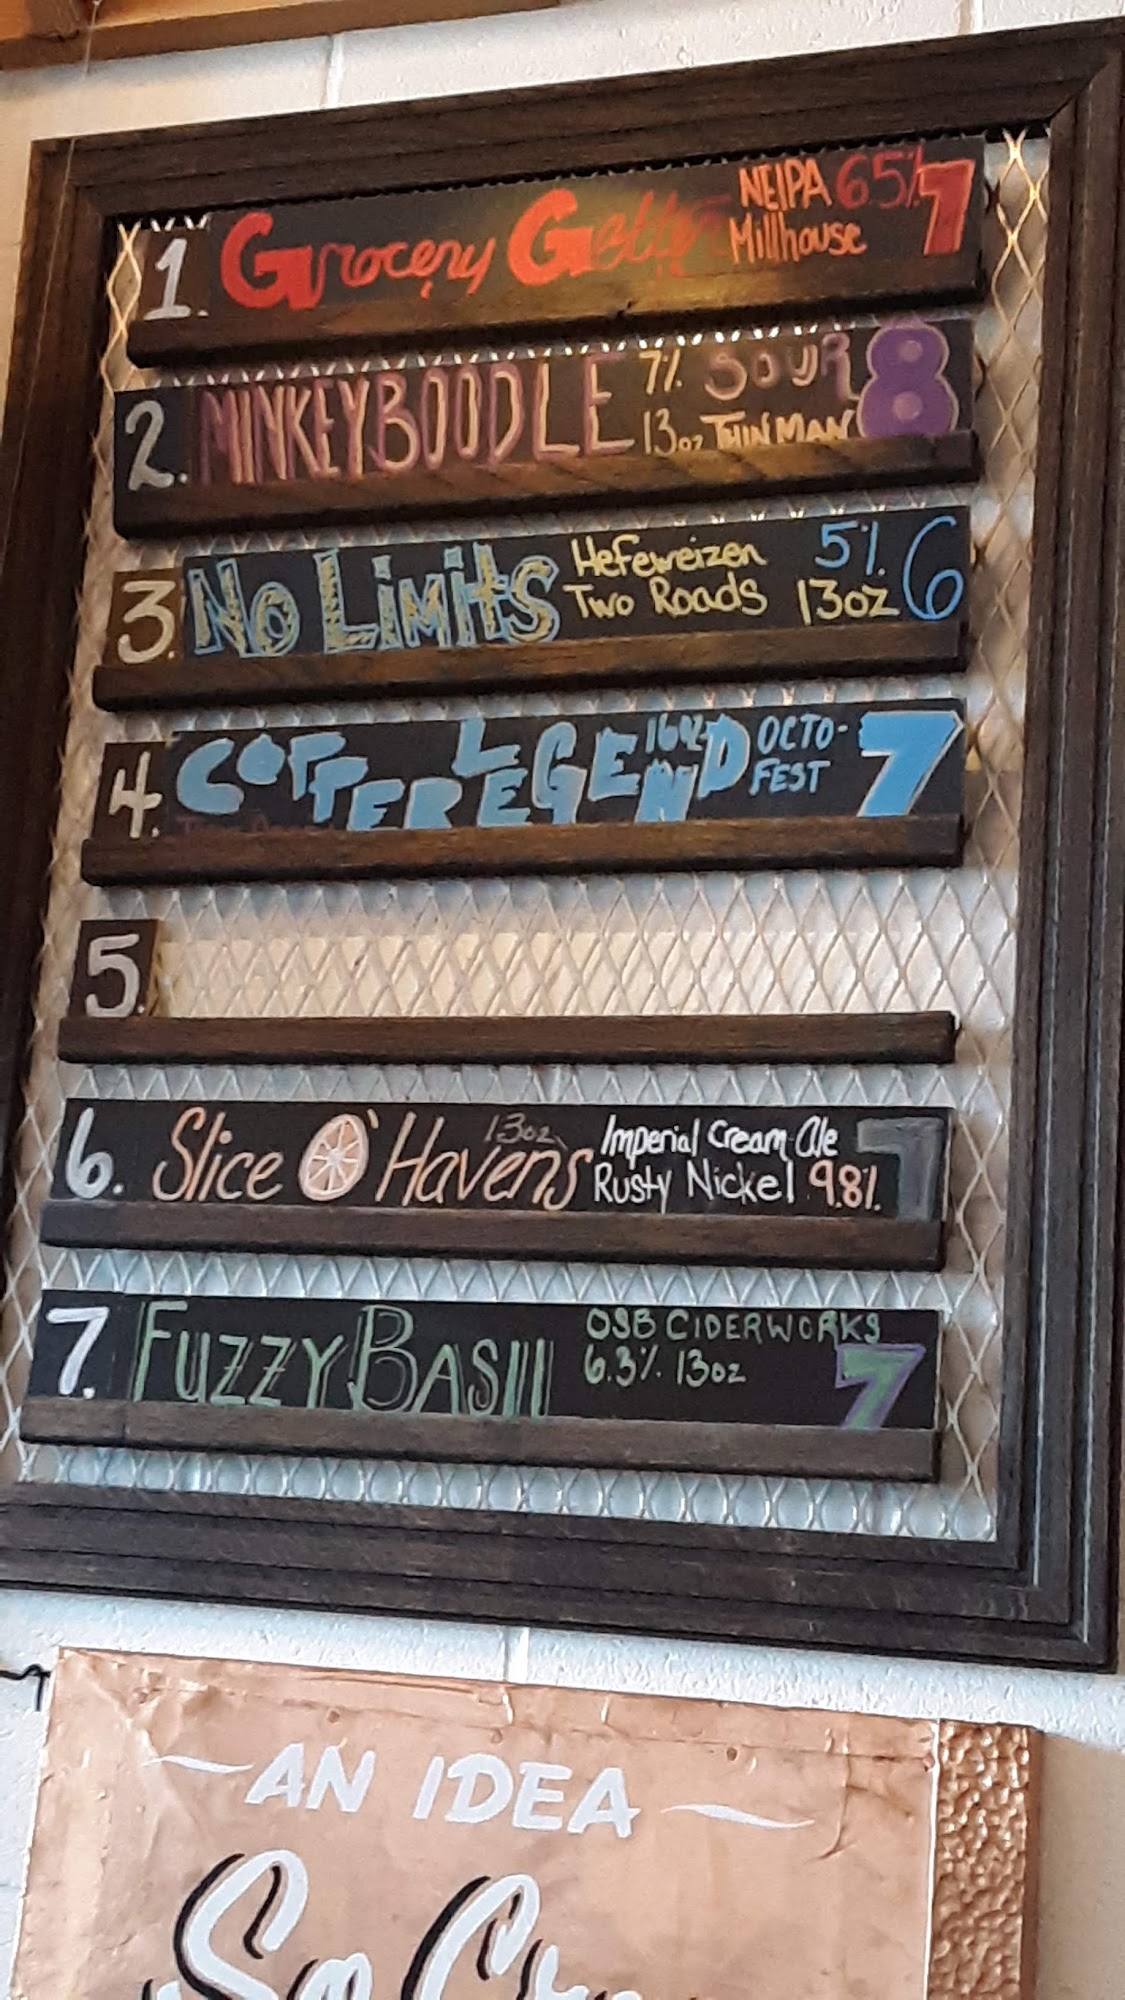 1. Grocery Getter NEIPA 65% 7
Millhouse
2. MINKEYBOODLE 7% SOUR 8
13oz THIN MAN
3. No Limits Hefeweizen 5% 6
Two Roads 13oz
4. COPPER LEGEND 16oz OCTO- 7
FEST
5.
6. Slice O' Havens 13oz Imperial Cream Ale 7
Rusty Nickel 9.8%
7. FUZZY BASIL OSB CIDERWORKS 7
6.3% 13oz
AN IDEA